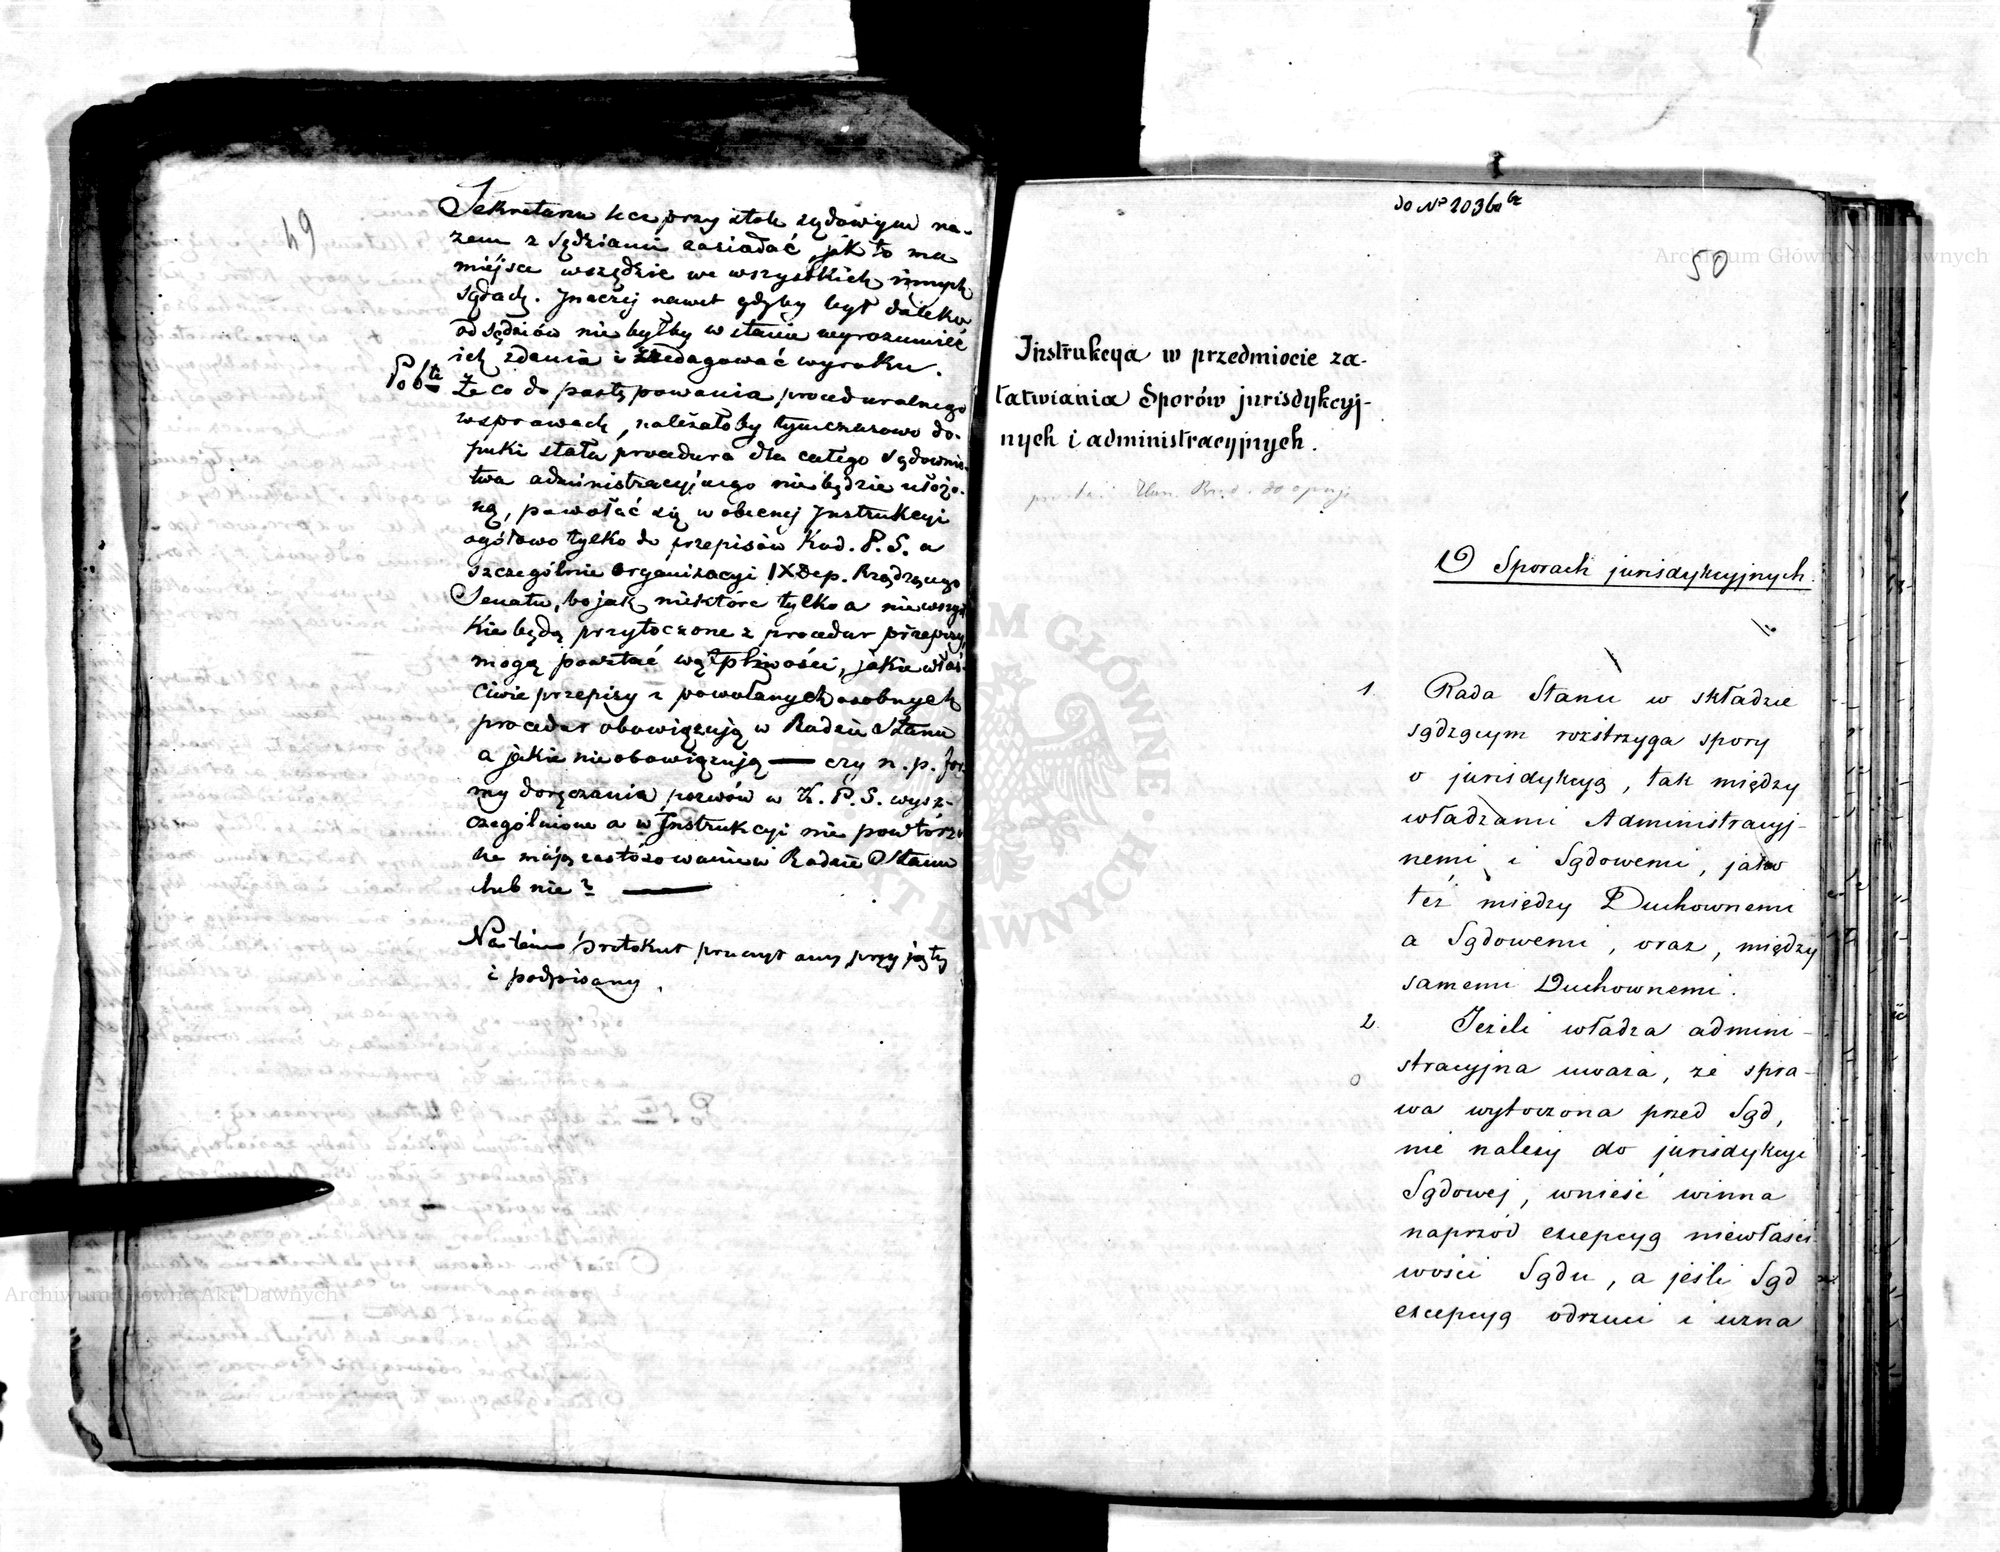 49
Sekretarza lecz przy stole sądowym ra-
zem z Sędziami zasiadać, jak to ma
miejsce wszędzie we wszystkich innych
sądach. Inaczej nawet gdyby był daleko
od sędziów nie byłby w stanie wyrozumieć
ich zdania i redagować wyroku.
Po 6te Że co do postępowania proceduralnego
w sprawach, należałoby tymczasowo do-
puki stała procedura dla całego Sądownic-
twa administracyjnego nie będzie ułożo-
ną, powołać się w obecnej Instrukcyi
ogółowo tylko do przepisów Kod. P. S. a
szczególnie Organizacyi IX Dep. Rządzącego
Senatu, bo jak niektóre tylko a nie wszyst
kie będą przytoczone z procedur przepisy,
mogą powstać wątpliwości, jakie właś-
ciwie przepisy z powołanych osobnych
procedur obowiązują w Radzie Stanu
a jakie nieobowiązują — czy n. p. for-
my doręczania pozwów w K. P. S. wysz-
czególnione a w Instrukcyi nie powtórzo
ne mają zastosowanie w Radzie Stanu
lub nie? —
Na tém protokuł przeczytany przyjęty
i podpisany.
do No 1036
50
Instrukcya w przedmiocie za-
łatwiania Sporów jurisdykcyj-
nych i administracyjnych.
O Sporach jurisdykcyjnych.
1. Rada Stanu w składzie
sądzącym rozstrzyga spory
o jurisdykcyą, tak między
władzami Administracyj-
nemi i Sądowemi, jako
też między Duchownemi
a Sądowemi, oraz, między
samemi Duchownemi.
2. Jeżeli władza admini-
stracyjna uważa, że spra-
wa wytoczona przed Sąd,
nie należy do jurisdykcyi
Sądowej, wnieść winna
naprzód excepcyą niewłaści
wości Sądu, a jeśli Sąd
excepcyą odrzuci i uzna
Archiwum Główne Akt Dawnych
Archiwum Główne Akt Dawnych